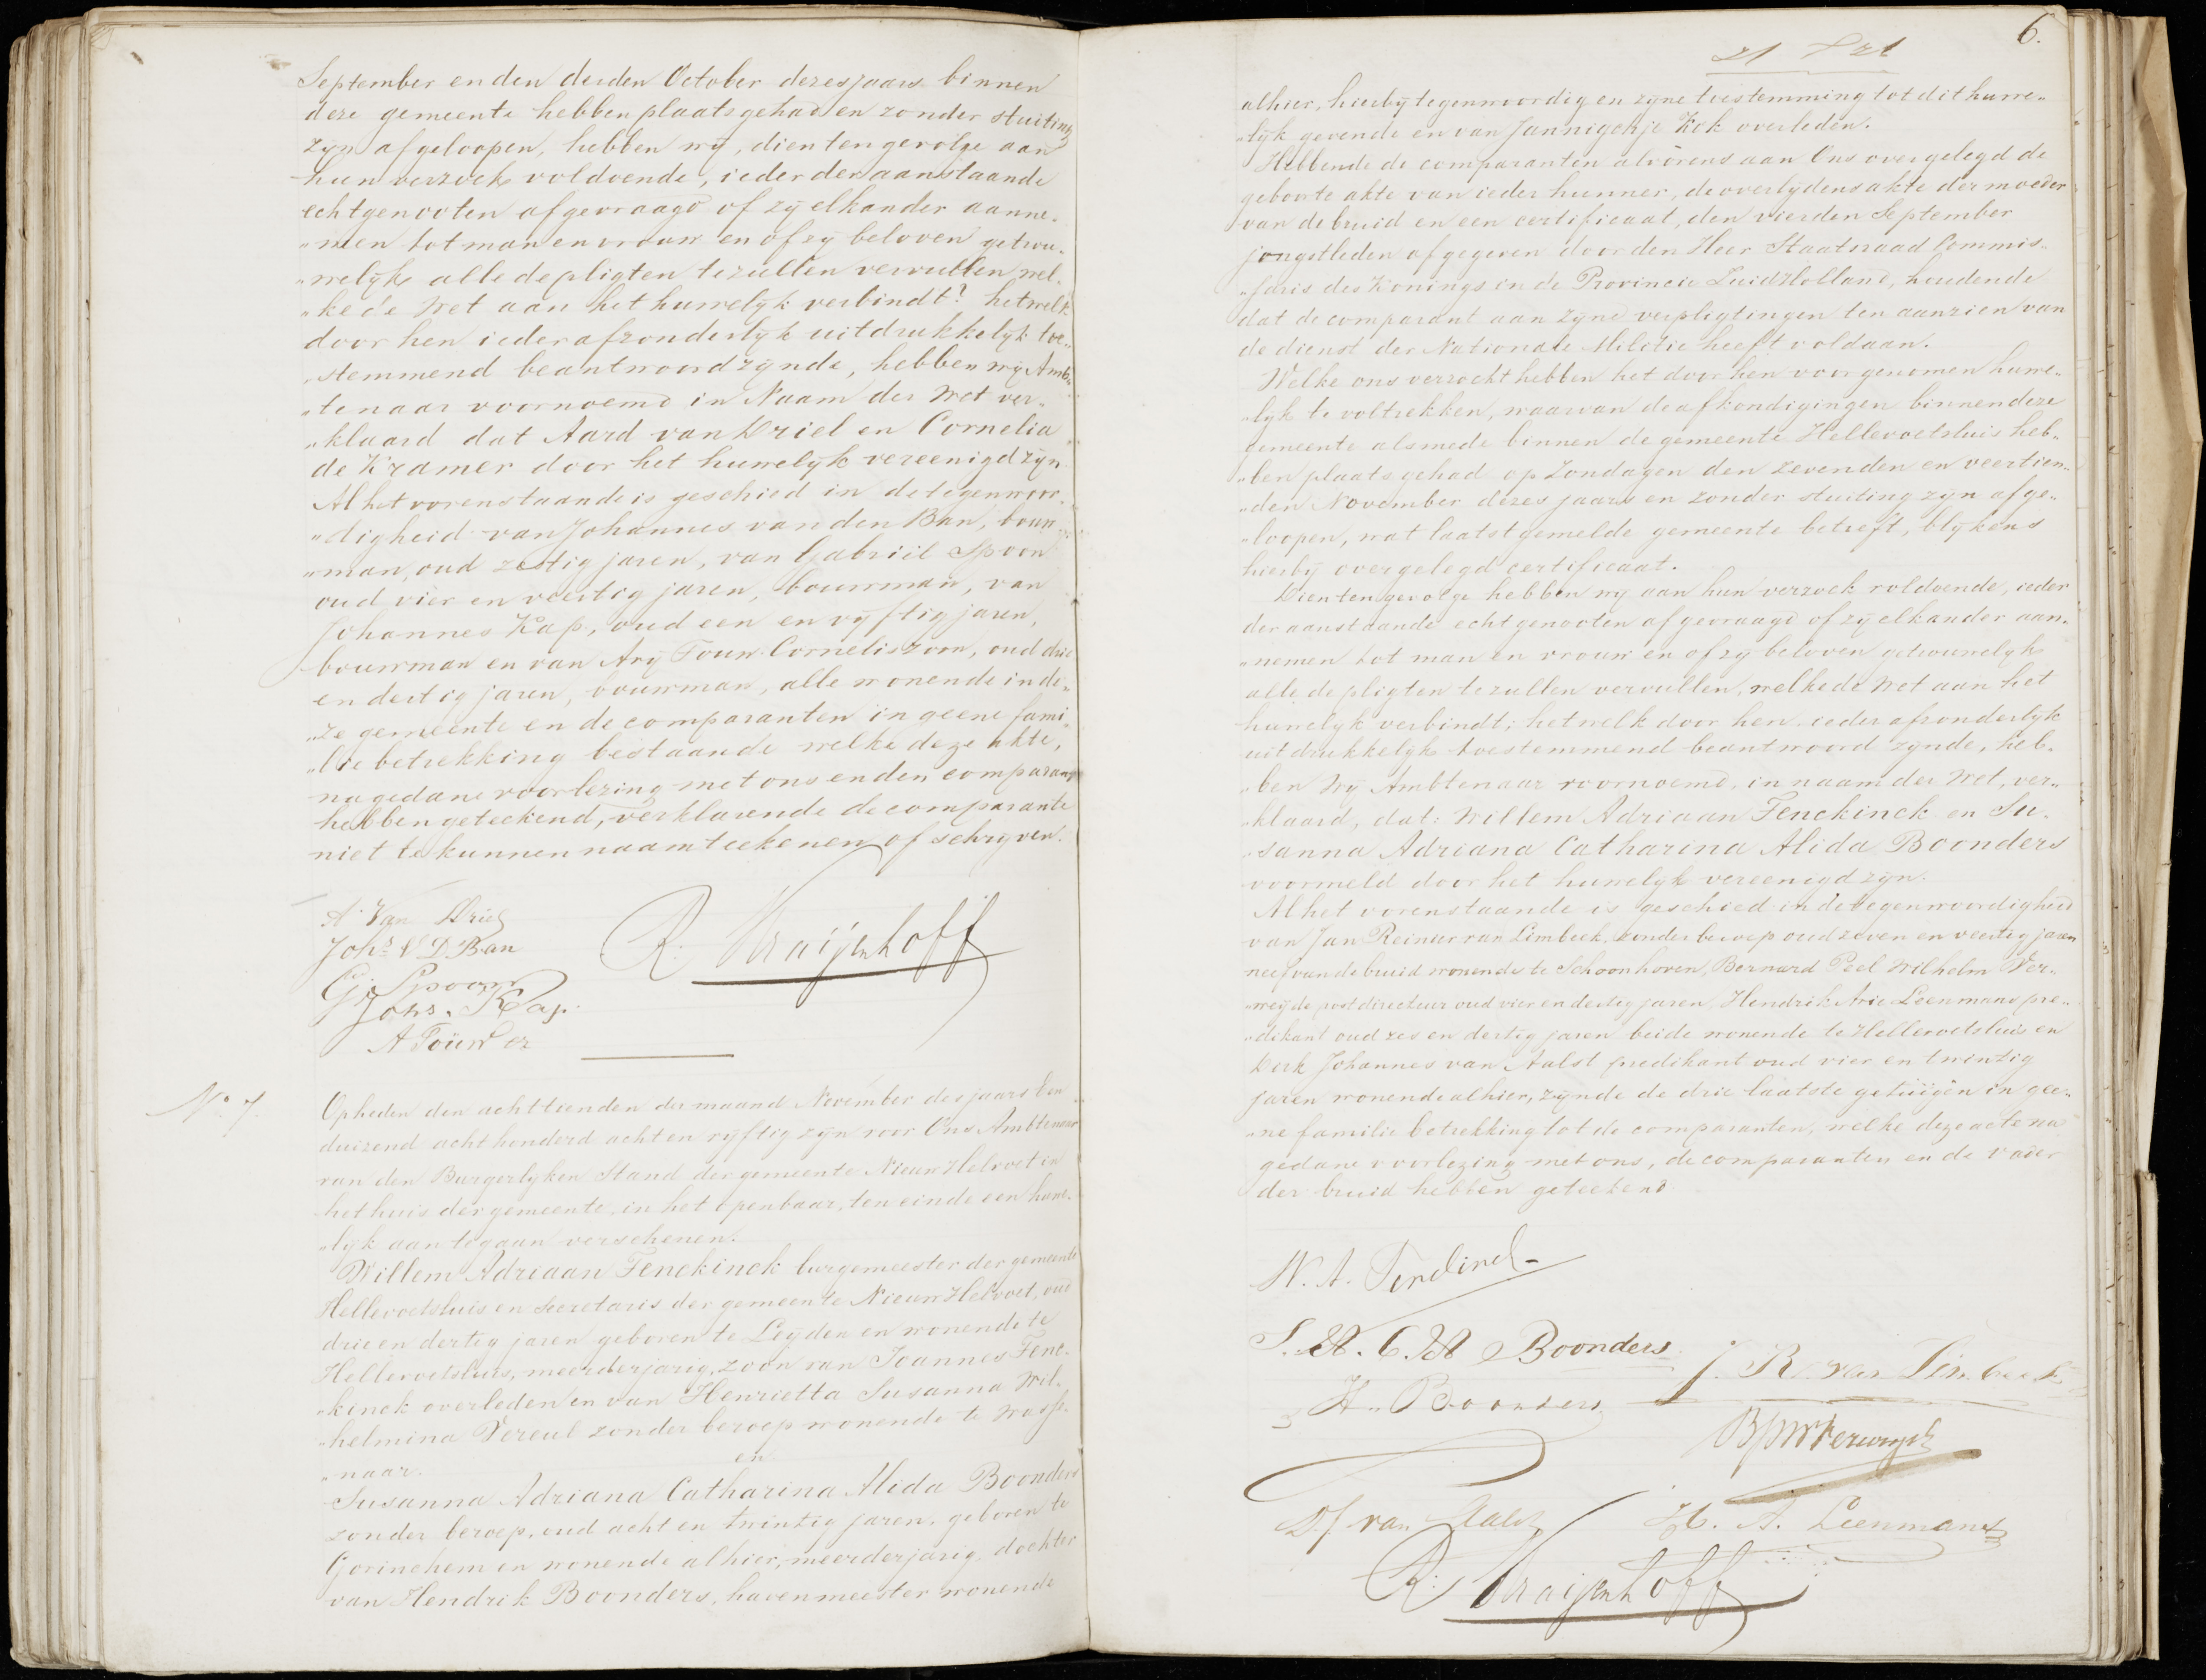 September en den derden October dezes jaars binnen
deze gemeente hebben plaats gehad en zonder stuiting
zyn afgeloopen, hebben wy, dien tengevolge aan
hun verzoek voldoende, ieder der aanstaande
echtgenooten afgevraagd of zy elkander aanne-
"men tot man en vrouw en of zy beloven getrou-
"welyk alle de pligten te zullen vervullen, wel-
"ke de Wet aan het huwelyk verbindt? hetwelk
door hen ieder afzonderlyk uitdrukkelyk toe-
"stemmend beantwoord zynde, hebben wy Amb-
"tenaar voornoemd in Naam der Wet ver-
"klaard dat Aard van Driel en Cornelia
de Kramer door het huwelyk vereenigd zyn
Al het vorenstaande is geschied in de tegenwoor-
"digheid van Johannes van den Ban, bouw-
"man, oud zestig jaren, van Gabriël Spoon
oud vier en veertig jaren, bouwman, van
Johannes Kap, oud een en vyftig jaren,
bouwman en van Ary Touw Corneliszoon, oud drie
en dertig jaren, bouwman, alle wonende in de-
"ze gemeente en de comparanten in geene fami-
"lie betrekking bestaande welke deze akte,
na gedane voorlezing met ons en den comparant
hebben geteekend, verklarende de comparante
niet te kunnen naamteekenen of schryven.
A. Van Driel
Johs. V D Ban
R. Kraijenhoff
G. Spoon
Johs. Kap.
A Touw Cz
No. 7.
Op heden den achttienden der maand November des jaars Een
duizend achthonderd acht en vyftig zyn voor Ons Ambtenaar
van den Burgerlyken Stand der gemeente Nieuw Helvoet in
het huis der gemeente, in het openbaar, ten einde een huwe-
"lyk aan te gaan verschenen.
Willem Adriaan Fenckinck burgemeester der gemeente
Hellevoetsluis en Secretaris der gemeente Nieuw Helvoet, oud
drie en dertig jaren geboren te Leyden en wonende te
Hellevoetsluis, meerderjarig, zoon van Joannes Fenc-
"kinck overleden en van Henrietta Susanna Wil-
"helmina Vereul zonder beroep wonende te Wasse-
"naar.
en
Susanna Adriana Catharina Alida Boonders
zonder beroep, oud acht en twintig jaren, geboren te
Gorinchem en wonende alhier, meerderjarig, dochter
van Hendrik Boonders, havenmeester wonende
6.
alhier, hierby tegenwoordig en zyne toestemming tot dit huwe-
"lyk gevende en van Jannigchje Kok overleden.
Hebbende de comparanten alvorens aan Ons overgelegd de
geboorte akte van ieder hunner, de overlydens akte der moeder
van de bruid en een certificaat, den vierden September
jongstleden afgegeven door den Heer Staatsraad Commis-
"saris des Konings in de Provincie Zuid Holland, houdende
dat de comparant aan zyne verpligtingen ten aanzien van
de dienst der Nationale Militie heeft voldaan.
Welke ons verzocht hebben het door hen voorgenomen huwe-
"lyk te voltrekken, waarvan de afkondigingen binnen deze
gemeente alsmede binnen de gemeente Hellevoetsluis heb-
"ben plaats gehad op Zondagen den zevenden en veertien-
"den November dezes jaars en zonder stuiting zyn afge-
"loopen, wat laatstgemelde gemeente betreft, blykens
hierby overgelegd certificaat.
Dien tengevolge hebben wy aan hun verzoek voldoende, ieder
der aanstaande echtgenooten afgevraagd of zy elkander aan-
"nemen tot man en vrouw en of zy beloven getrouwelyk
alle de pligten te zullen vervullen, welke de Wet aan het
huwelyk verbindt; hetwelk door hen ieder afzonderlyk
uitdrukkelyk toestemmend beantwoord zynde, heb-
"ben Wy Ambtenaar voornoemd, in naam der Wet, ver-
"klaard, dat: Willem Adriaan Fenckinck en Su-
"sanna Adriana Catharina Alida Boonders
voormeld door het huwelyk vereenigd zyn.
Al het vorenstaande is geschied in de tegenwoordigheid
van Jan Reinier van Limbeek, zonder beroep oud zeven en veertig jaren
neef van de bruid wonende te Schoonhoven, Bernard Peel Wilhelm Ver-
"weijde postdirecteur oud vier en dertig jaren, Hendrik Arie Leenmans pre-
"dikant oud zes en dertig jaren beide wonende te Hellevoetsluis en
Dirk Johannes van Aalst predikant oud vier en twintig
jaren wonende alhier, zynde de drie laatste getuigen in gee-
"ne familie betrekking tot de comparanten, welke deze acte na
gedane voorlezing met ons, de comparanten en de vader
der bruid hebben geteekend.
W. A. Fenckinck
S. A. C. A Boonders
J. R. van Limbeek
H. Boonders
D J van Aalst
H. A. Leenmans
R. Kraijenhoff